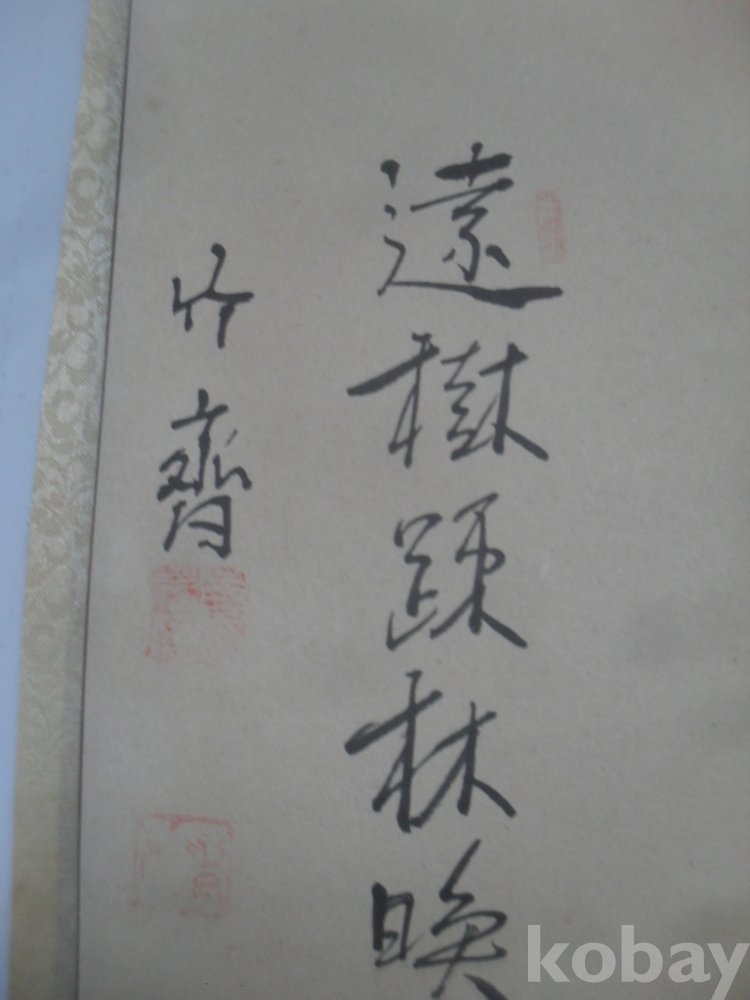 遠樹踈林映
竹齋
kobay